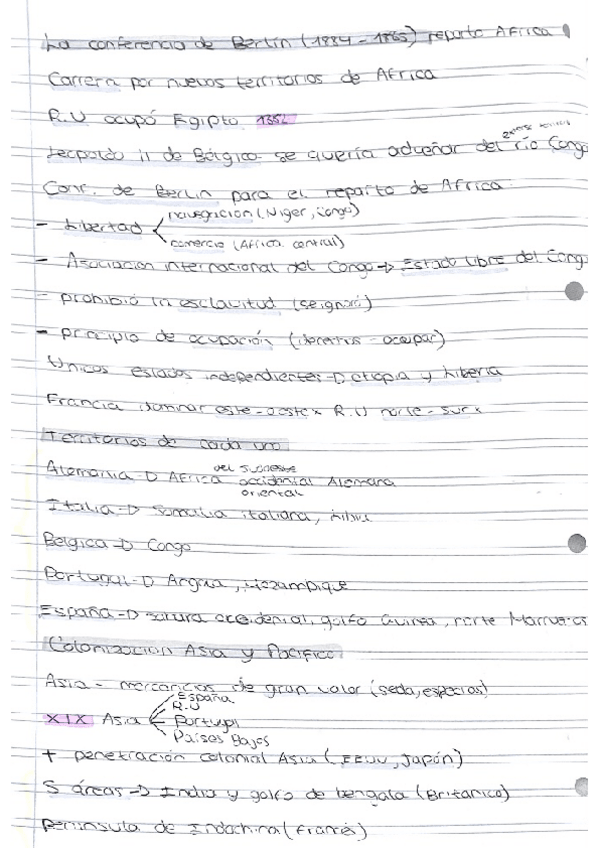 La conferencia de Berlín (1884 - 1885) reparto Africa
Carrera por nuevos territorios de Africa
R.U ocupó Egipto 1882
Leopoldo II de Bélgica se quería adueñar del río Congo
Conf. de Berlín para el reparto de Africa
- Libertad
navegación (Niger, Congo)
comercio (Africa central)
- Asociación internacional del Congo → Estado libre del Congo
- prohibió la esclavitud (se ignoró)
- principio de ocupación (ocupar)
Únicos estados independientes → etiopia y Liberia
Francia dominar este-oeste x R.U norte - sur x
Territorios de cada uno
Alemania → Africa del suroeste occidental Alemana
oriental
Italia → Somalia italiana, Libia
Belgica → Congo
Portugal → Angola, Mozambique
España → sahara occidental, golfo Guinea, norte Marruecos
Colonización Asia y Pacifico
Asia - mercancías de gran valor (seda, especias)
XIX Asia
España
R.U
Portugal
Países Bajos
+ penetración colonial Asia (EEUU, Japón)
5 áreas → India y golfo de bengala (Britanico)
península de Indochina (francés)